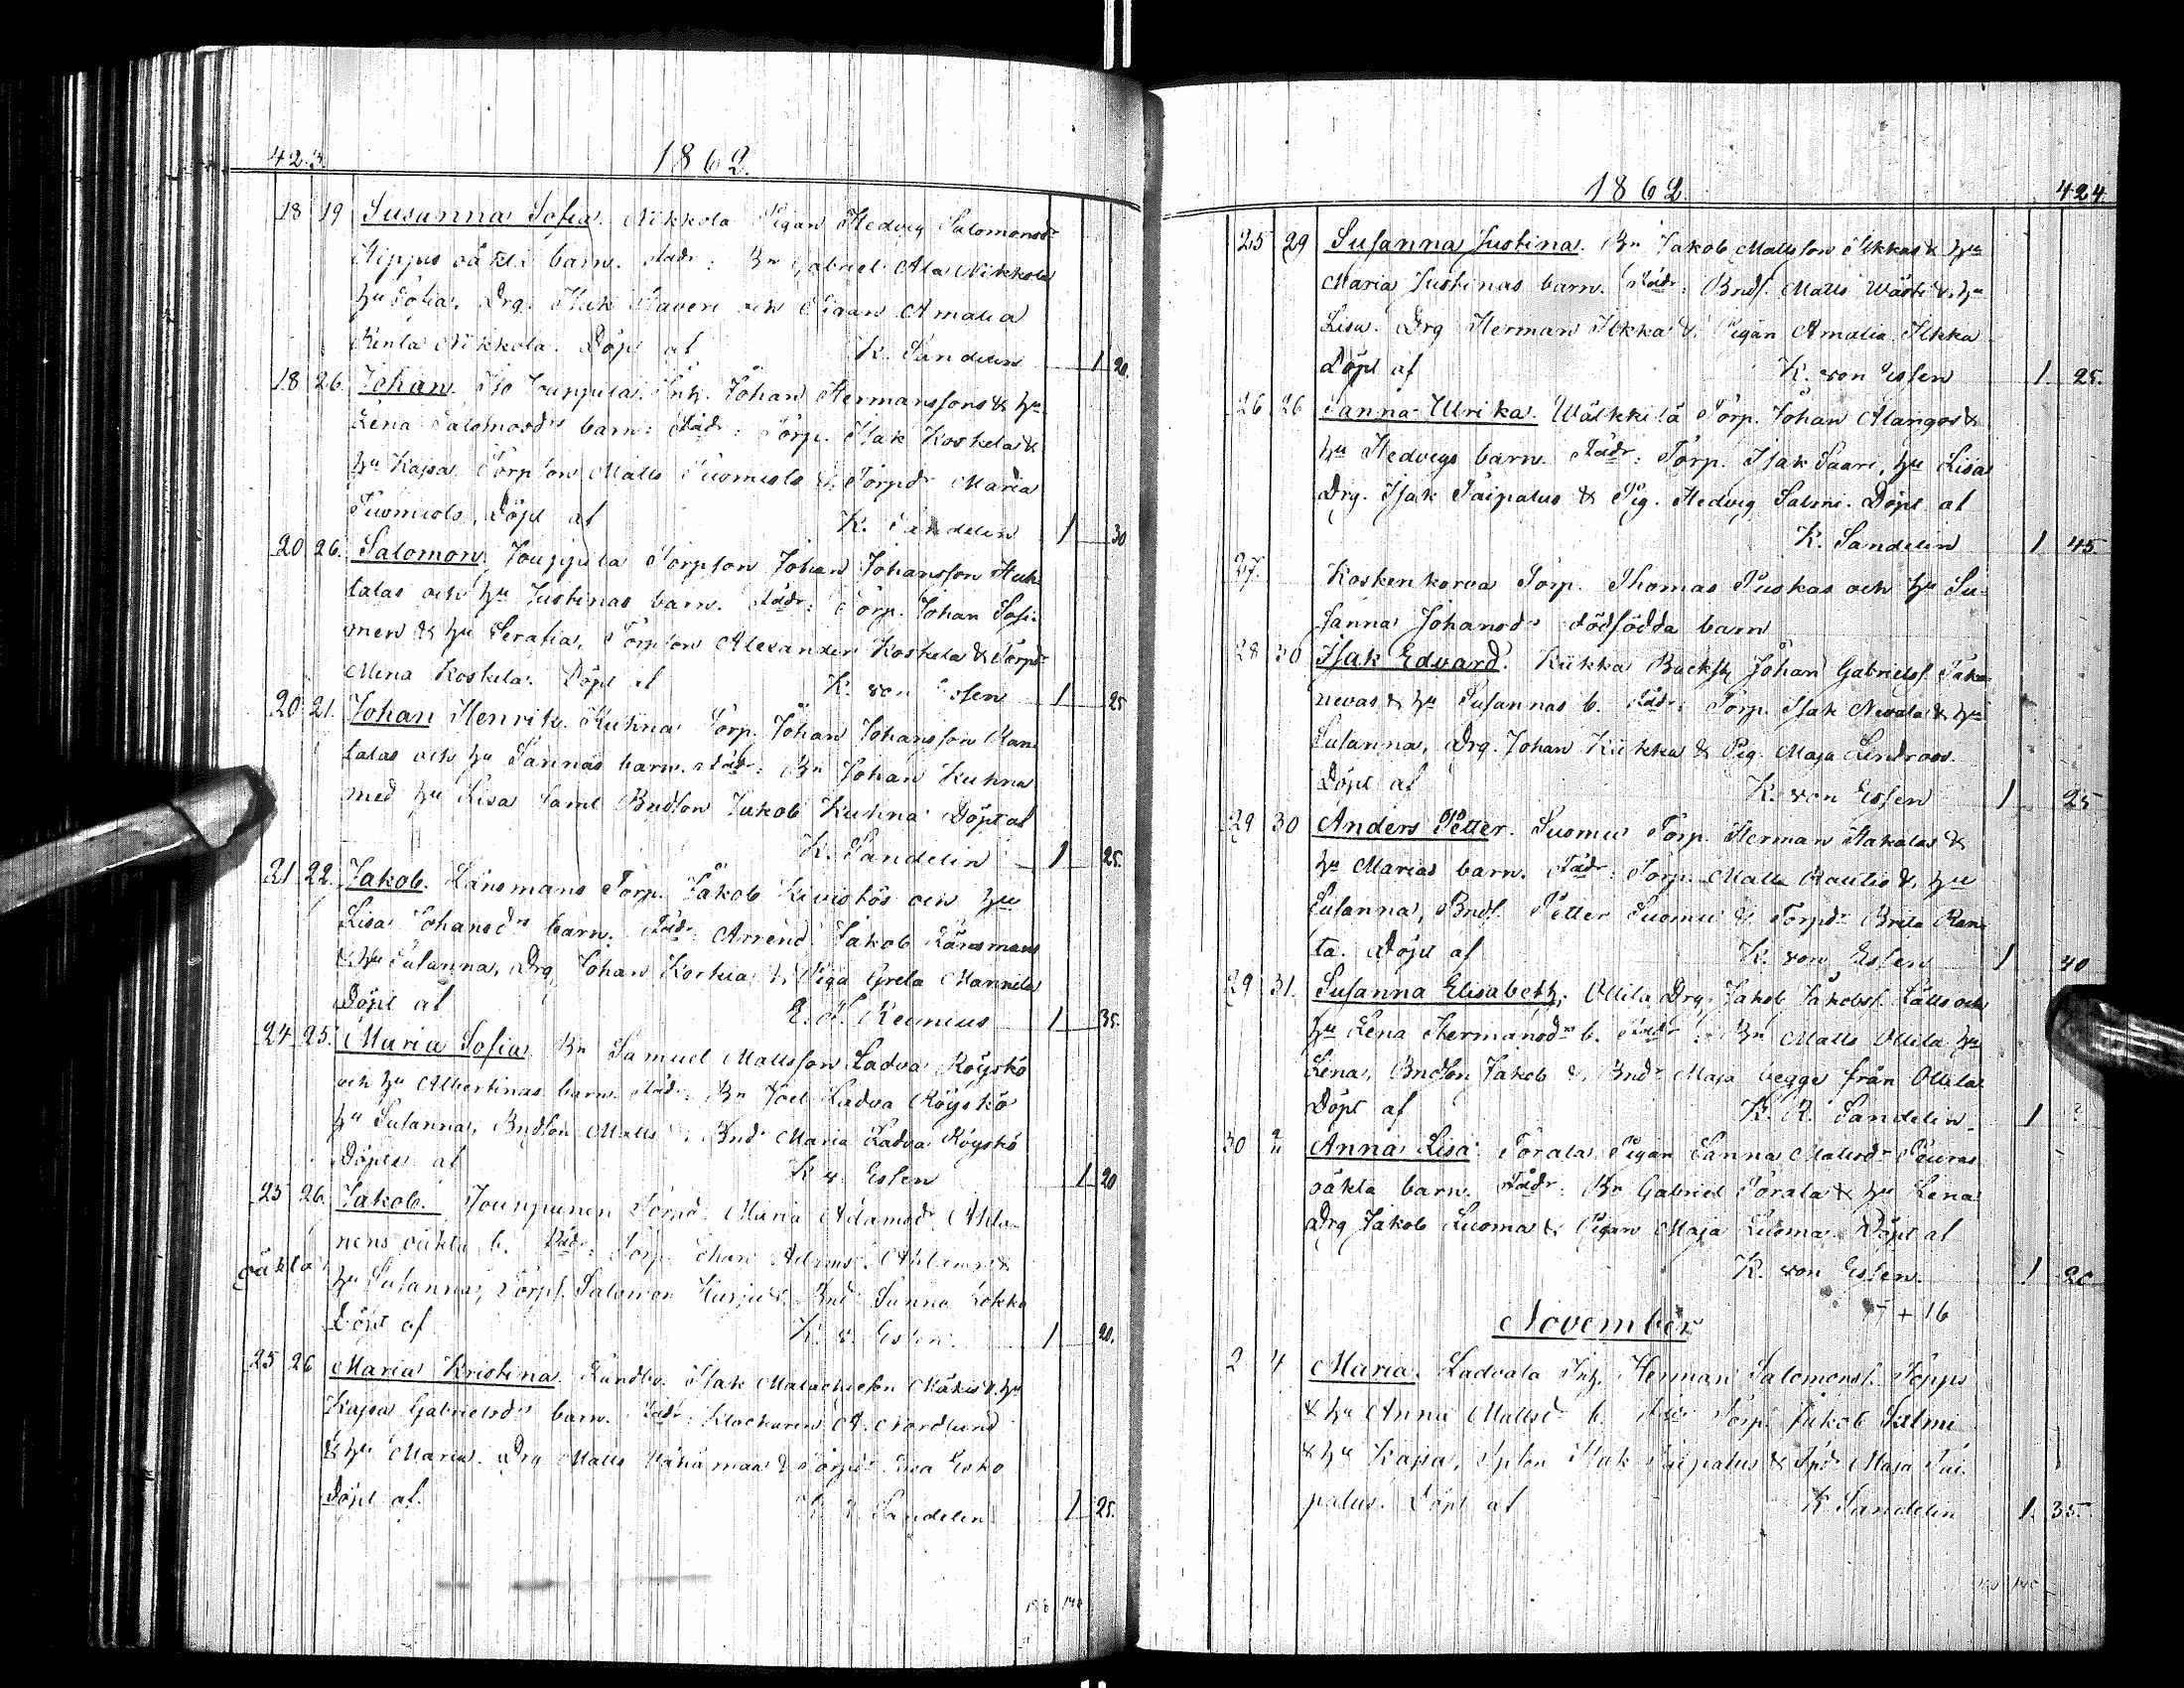 423. 1862.
18 19 Susanna Sofia. Nikkola Pigan Hedvig Salomonsdr
oäkta barn. Fadr: Bn Gabriel Ala Nikkola
hu Sofia, Drg. Isak Saveri och Pigan Amalia
Nikkola. Döpt af K. Sandelin 1 20.
18 26. Johan. Iso Jouppila Inh. Johan Hermanssons & hu
Lena Salomosdrs barn: Fadr: Torp. Isak Koskela &
hu Kajsa Torpson Matts Tuomisto & Torpdr Maria
Tuomisto, Döpt af K. Sandelin 1 30
20 26. Salomon. Jouppila Torpson Johan Johansson Huh-
talas och hu Justinas barn. Fadr: Torp. Johan
men & hu Serafia, Torpson Alexander Koskela & Torpdr
Mina Koskela. Döpt af K. von Essen 1 25
20 21. Johan Henrik. Kuhna Torp. Johan Johansson Ran
talas och hu Sannas barn. Fadr: Bn Johan Kuhna
med hu Lisa samt Bndson Jakob Kuhna Döpt af
K. Sandelin 1 25.
21 22. Jakob. Länsmans Torp. Jakob Kivistös och hu
Lisa Johansdrs barn. Fadr: Arrend. Jakob Länsmans
& hu Susanna, Drg Johan Koskua & Piga Greta Mannila
Döpt af E. J. Reinius 1 35.
24 25. Maria Sofia Bn Samuel Mattsson Ladva Röyskö
och hu Albertinas barn. Fadr: Bn Joel Ladva Röyskö
hu Susanna, Bndson Matts & Bndr Maria Ladva Röyskö
Döpts af K v. Essen 1 20
25 26. Jakob. Jouppunen Torpd. Maria Adamsdr Ahla-
nens oäkta b. Fadr: Torp. Johan
oäkta
hu Susanna, Torps. Salomon Harju & Bndr Sanna Lokko
Döpt af K. v. Essen. 1 20.
25 26 Maria Kristina. Landbo. Isak Malachieson Mäkis & hu
Kajsa Gabrielsdrs barn. Fadr: Klockaren A. Nordlund
& hu Maria. Drg Matts & Torpdr Eva Esko
Döpt af. K R Sandelin 1 25.
1862. 424.
25 29 Susanna Justina. Bn Jakob Mattsson Ilkkas & hu
Maria Justinas barn. Fadr: Bnds. Matts Wästi & hu
Lisa. Drg Herman Ilkka & Pigan Amalia Ilkka
Döpt af K. von Essen 1. 25.
26 26 Sanna Ulrika. Wälkkilä Torp. Johan Alangos &
hu Hedvigs barn. Fadr: Torp. Isak Saari, hu Lisa
Drg. Isak Päipatus & Pig. Hedvig Salmi. Döpt af
K. Sandelin 1 45
27. Koskenkorva Torp. Thomas Puskas och hu Su-
sanna Johansdrs dödfödda barn
28 30 Isak Edvard. Kiikka Backst. Johan Gabrielss. Taka-
nevas & hu Susannas b. Fadr: Torp. Isak Nevala & hu
Susanna, Drg. Johan Kiikka & Pig. Maja Lindroos.
Döpt af K. von Essen 1 25
29 30 Anders Petter. Suomu Torp. Herman Hakalas &
hu Marias barn. Fadr: Torp. Matts Rautio & hu
Susanna, Bnds. Petter Suomu & Torpdr Brita Ran
ta. Döpt af K. von Essen 1 40
29 31. Susanna Elisabeth. Ollila Drg. Jakob Jakobss. Lätts och
hu Lena Hermansdrs b. Fadr: Bn Matts Ollila hu
Lena, Bndson Jakob & Bndr Maja begge från Ollila
Döpt af K. R. Sandelin 1
30 Anna Lisa. Torala Pigan Sanna Mattsdr Peuras
oäkta barn. Fadr: Bn Gabriel Torala & hu Lena
Drg Jakob Luoma & Pigan Maja Luoma. Döpt af
K. von Essen. 1 20
+ 16
November
2 4 Maria. Ladvala Inh. Herman Salomonss. Sepps
& hu Anna Mattsdrs b. Fadr Torp. Jakob Salmi
& hu Kajsa, Tpson Isak Päipatus & Tpdr Maja Päi-
patus. Döpt af K Sandelin 1. 35.